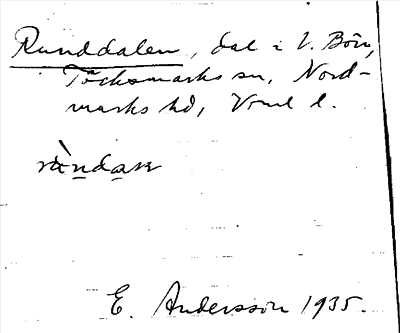 Runddalen, dal i V. Bön,
Töcksmarks sn, Nord-
marks hd, Vrml l.
E. Andersson 1935.